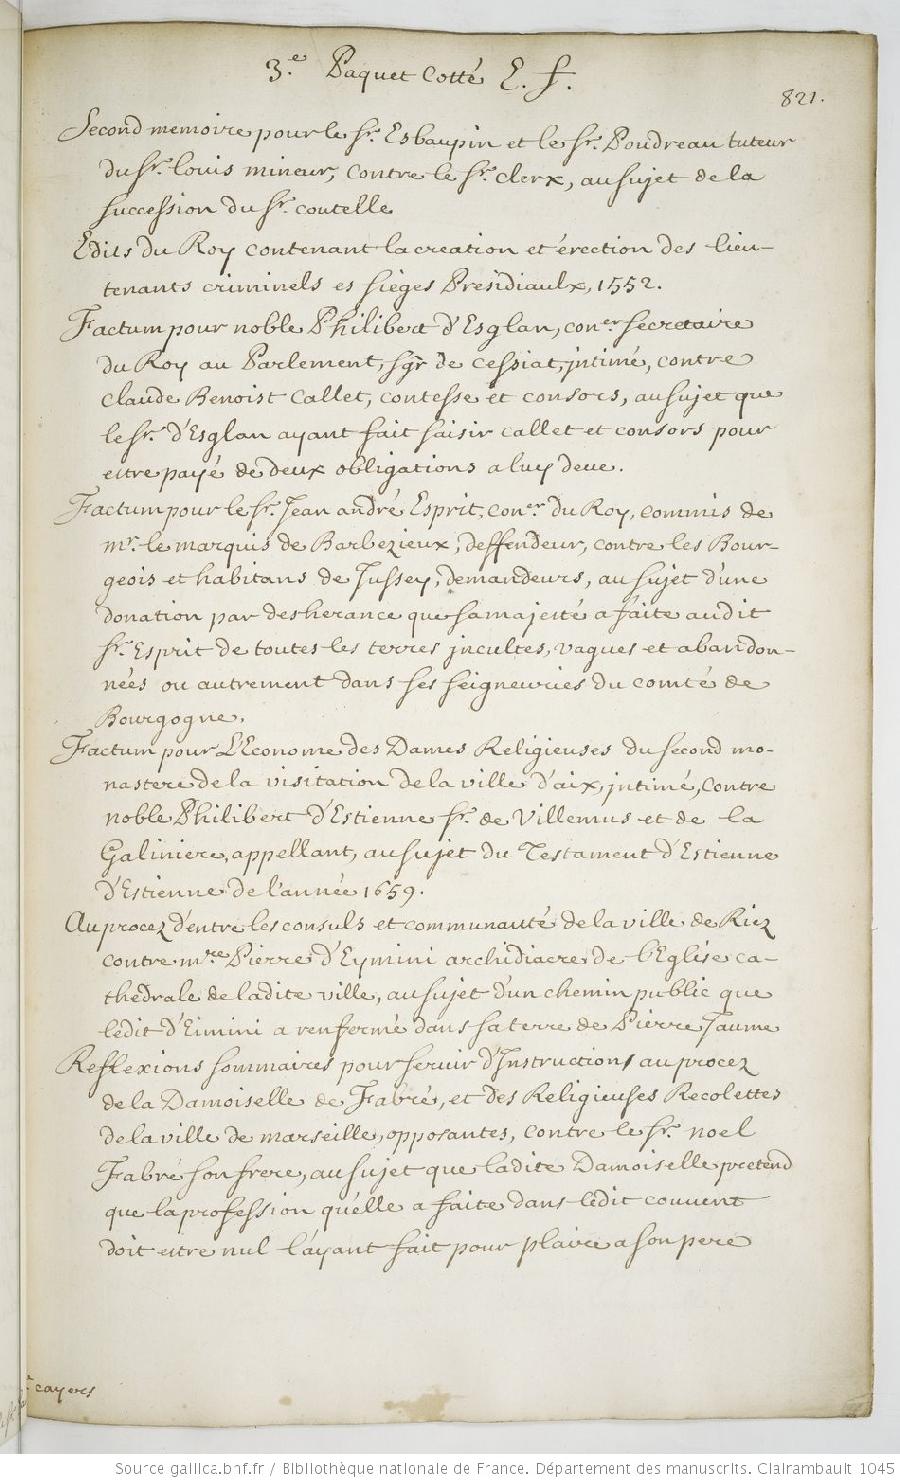 3.e Paquet cotté E. F.
821.
Second memoire pour le Sr. Esbaupin et le Sr. Poudreau tuteur
du Sr. louis mineur, contre le Sr. clerx, au sujet de la
succession du Sr. coutelle
Edits du Roy contenant la creation et érection des lieu-
tenants criminels es siéges Présidiaulx, 1552.
Factum pour noble Philibert d'Esglan, coner. secretaire
du Roy au Parlement, sgr de cessiat, jntimé, contre
claude Benoist Callet, contesse et consors, au sujet que
le Sr. d'Esglan ayant fait saisir callet et consors pour
estre payé de deux obligations a luy deue.
Factum pour le Sr. Jean andré Esprit, coner. du Roy, commis de
mr. le marquis de Barbezieux, deffendeur, contre les Bour-
geois et habitans de Jussey, demandeurs, au sujet d'une
donation par desherance que sa majesté a faite audit
Sr. Esprit de toutes les terres jncultes, vagues et abandon-
nées ou autrement dans ses seigneuries du comté de
Bourgogne.
Factum pour L'Econome des Dames Religieuses du second mo-
nastere de la visitation de la ville d'aix, jntimé, contre
noble Philibert d'Estienne Sr. de Villemus et de la
Galiniere, appellant, au sujet du Testament d'Estienne
d'Estienne de l'année 1659.
Au procez d'entre les consuls et communauté de la ville de Riez
contre mre Pierre d'Eymini archidiacre de l'Eglise ca-
thedrale de ladite ville, au sujet d'un chemin public que
ledit d'Eimini a renfermé dans sa terre de Pierre Jaume
Reflexions sommaires pour servir d'Instructions au procez
de la Damoiselle de Fabre, et des Religieuses Recolettes
de la ville de marseille, opposantes, contre le Sr. noel
Fabre son frere, au sujet que ladite Damoiselle pretend
que la profession qu'elle a faite dans ledit couvent
doit estre nul l'ayant fait pour plaire a son pere
cayers
Source gallica.bnf.fr / Bibliothèque nationale de France. Département des manuscrits. Clairambault 1045